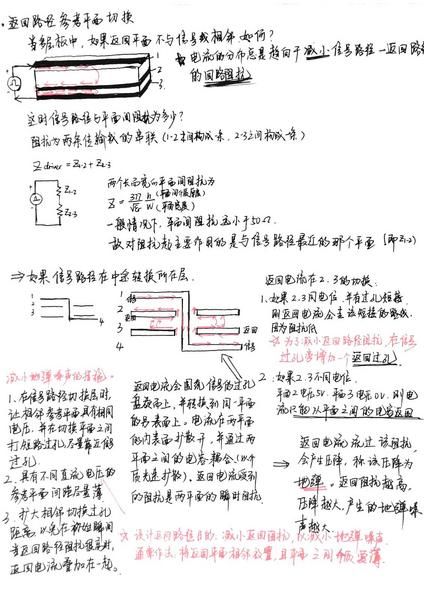 ·返回路径参考平面切换
当多层板中,如果返回平面不与信号线相邻如何?
电流的分布总是趋向于减小信号路径—返回路径
的回路阻抗
1
2
3
这时信号路径与平面间阻抗为多少?
阻抗为两条传输线的串联(1-2之间构成一条,2-3之间构成一条)
Z driver = Z1-2 + Z2-3
Z1-2
Z2-3
两个长而宽的平面间阻抗为
Z = 377/√εr h/W (平面间距离) (平面宽度)
一般情况下,平面间阻抗远小于50Ω.
故对阻抗起主要作用的是与信号路径最近的那个平面(即Z1-2)
⇒如果信号路径在中途转换所在层.
1
2
3
4
1
2
3
4
信号
返回
返回
信号
返回电流在2.3的切换
1.如果2.3同电位,并有过孔短接
则返回电流会走该短接的路线
因为阻抗低
☆为了减小返回路径阻抗,在信号
过孔旁增加一个返回过孔
2.如果2.3不同电位.
平面2电位5V,平面3电平0V.则电
流只能从平面之间的电容返回
返回电流流过该阻抗
⇒会产生压降,称该压降为
地弹。返回阻抗越高,
压降越大,产生的地弹噪
声越大.
返回电流会围绕信号的过孔
盘
面上,并转换到同一平面
的另表面上。电流在两平面
的内表面扩散开,并通过两
平面之间的电容耦合(以介
质光速扩散)。返回电流受到
的阻抗是两平面的瞬时阻抗.
减小地弹噪声的措施。
1.在信号路径切换层时,
让相邻参考平面具有相同
电压,并在切换平面之间
打短路过孔,尽量靠近信号
过孔.
2.具有不同直流电压的
参考平面间距尽量薄
3.扩大相邻切换过孔
距离,以免在初始瞬间
当返回路径阻抗很高时,
返回电流叠加在一起。
☆设计返回路径目的:减小返回阻抗,以减小地弹噪声.
通常作法:将返回平面相邻放置,且平面之间介质要薄